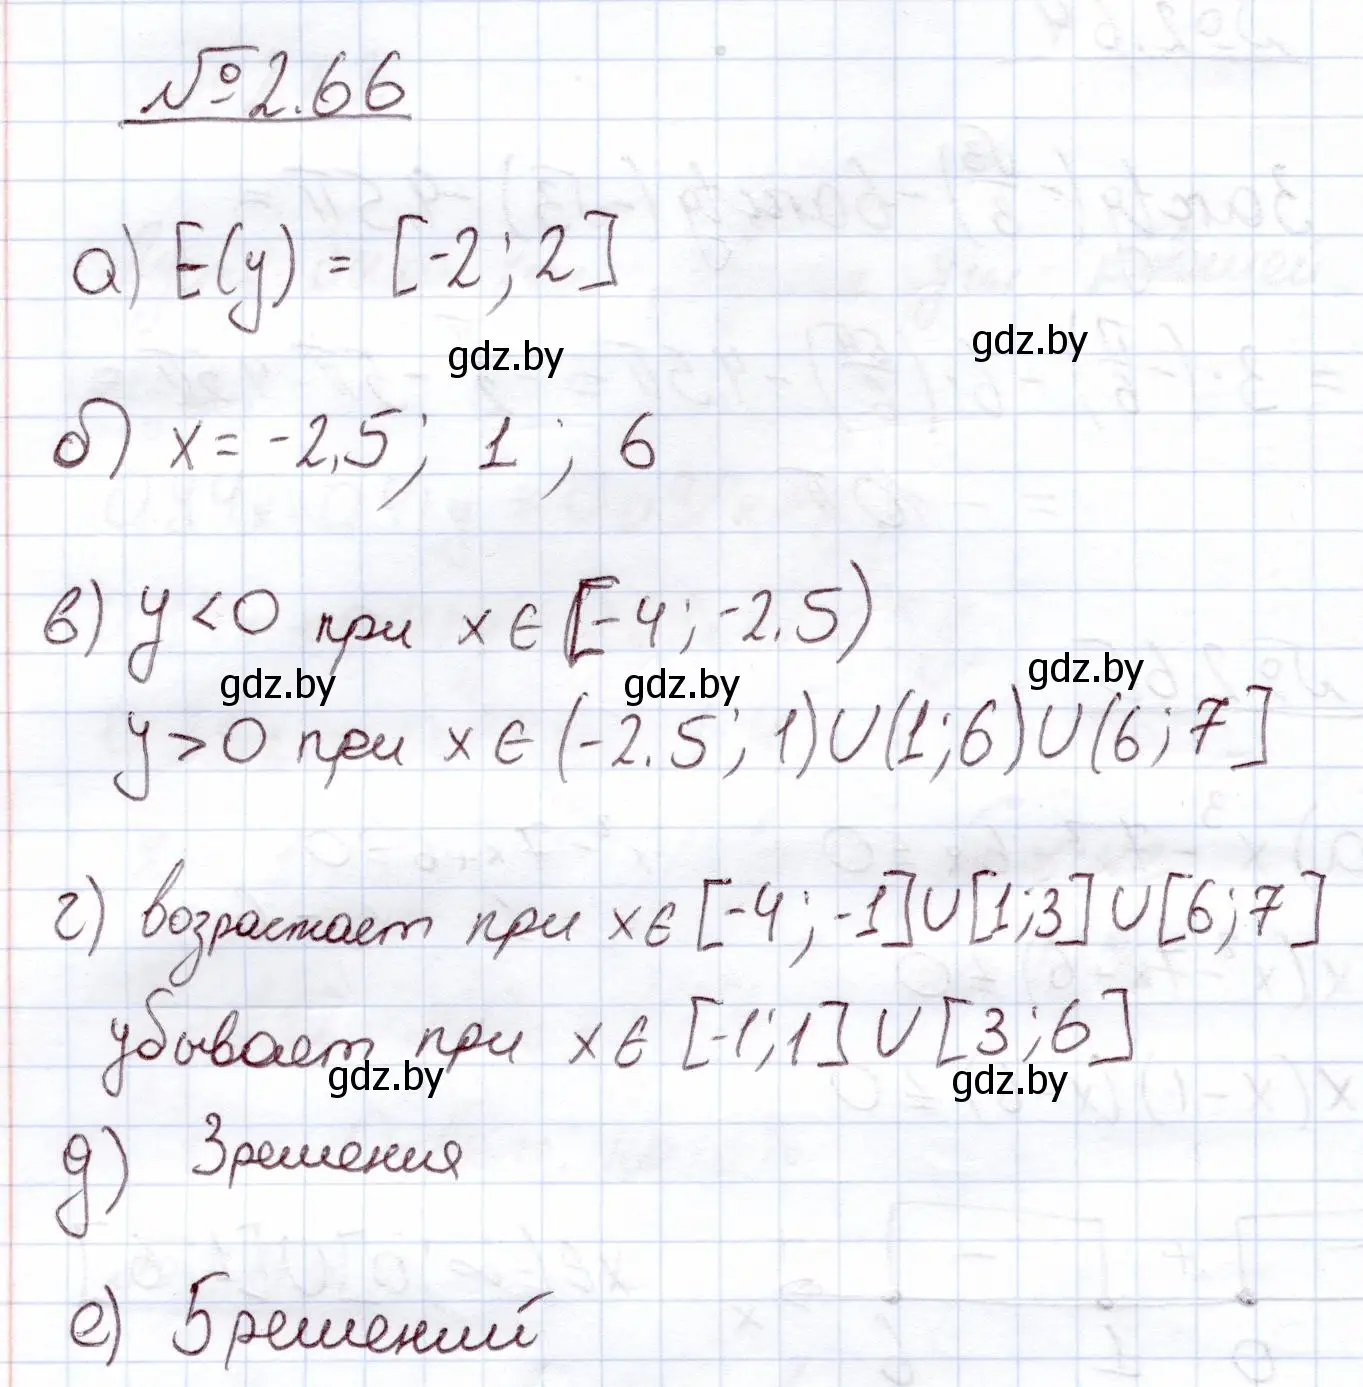 №2.66
а) E(y) = [-2; 2]
gdz.by
gdz.by
б) x = -2,5; 1; 6
в) y < 0 при x ∈ [-4; -2.5)
gdz.by
gdz.by
gdz.by
y > 0 при x ∈ (-2.5; 1) ∪ (1; 6) ∪ (6; 7]
г) возрастает при x ∈ [-4; -1] ∪ [1; 3] ∪ [6; 7]
убывает при x ∈ [-1; 1] ∪ [3; 6]
gdz.by
gdz.by
д) 3 решения
е) 5 решений